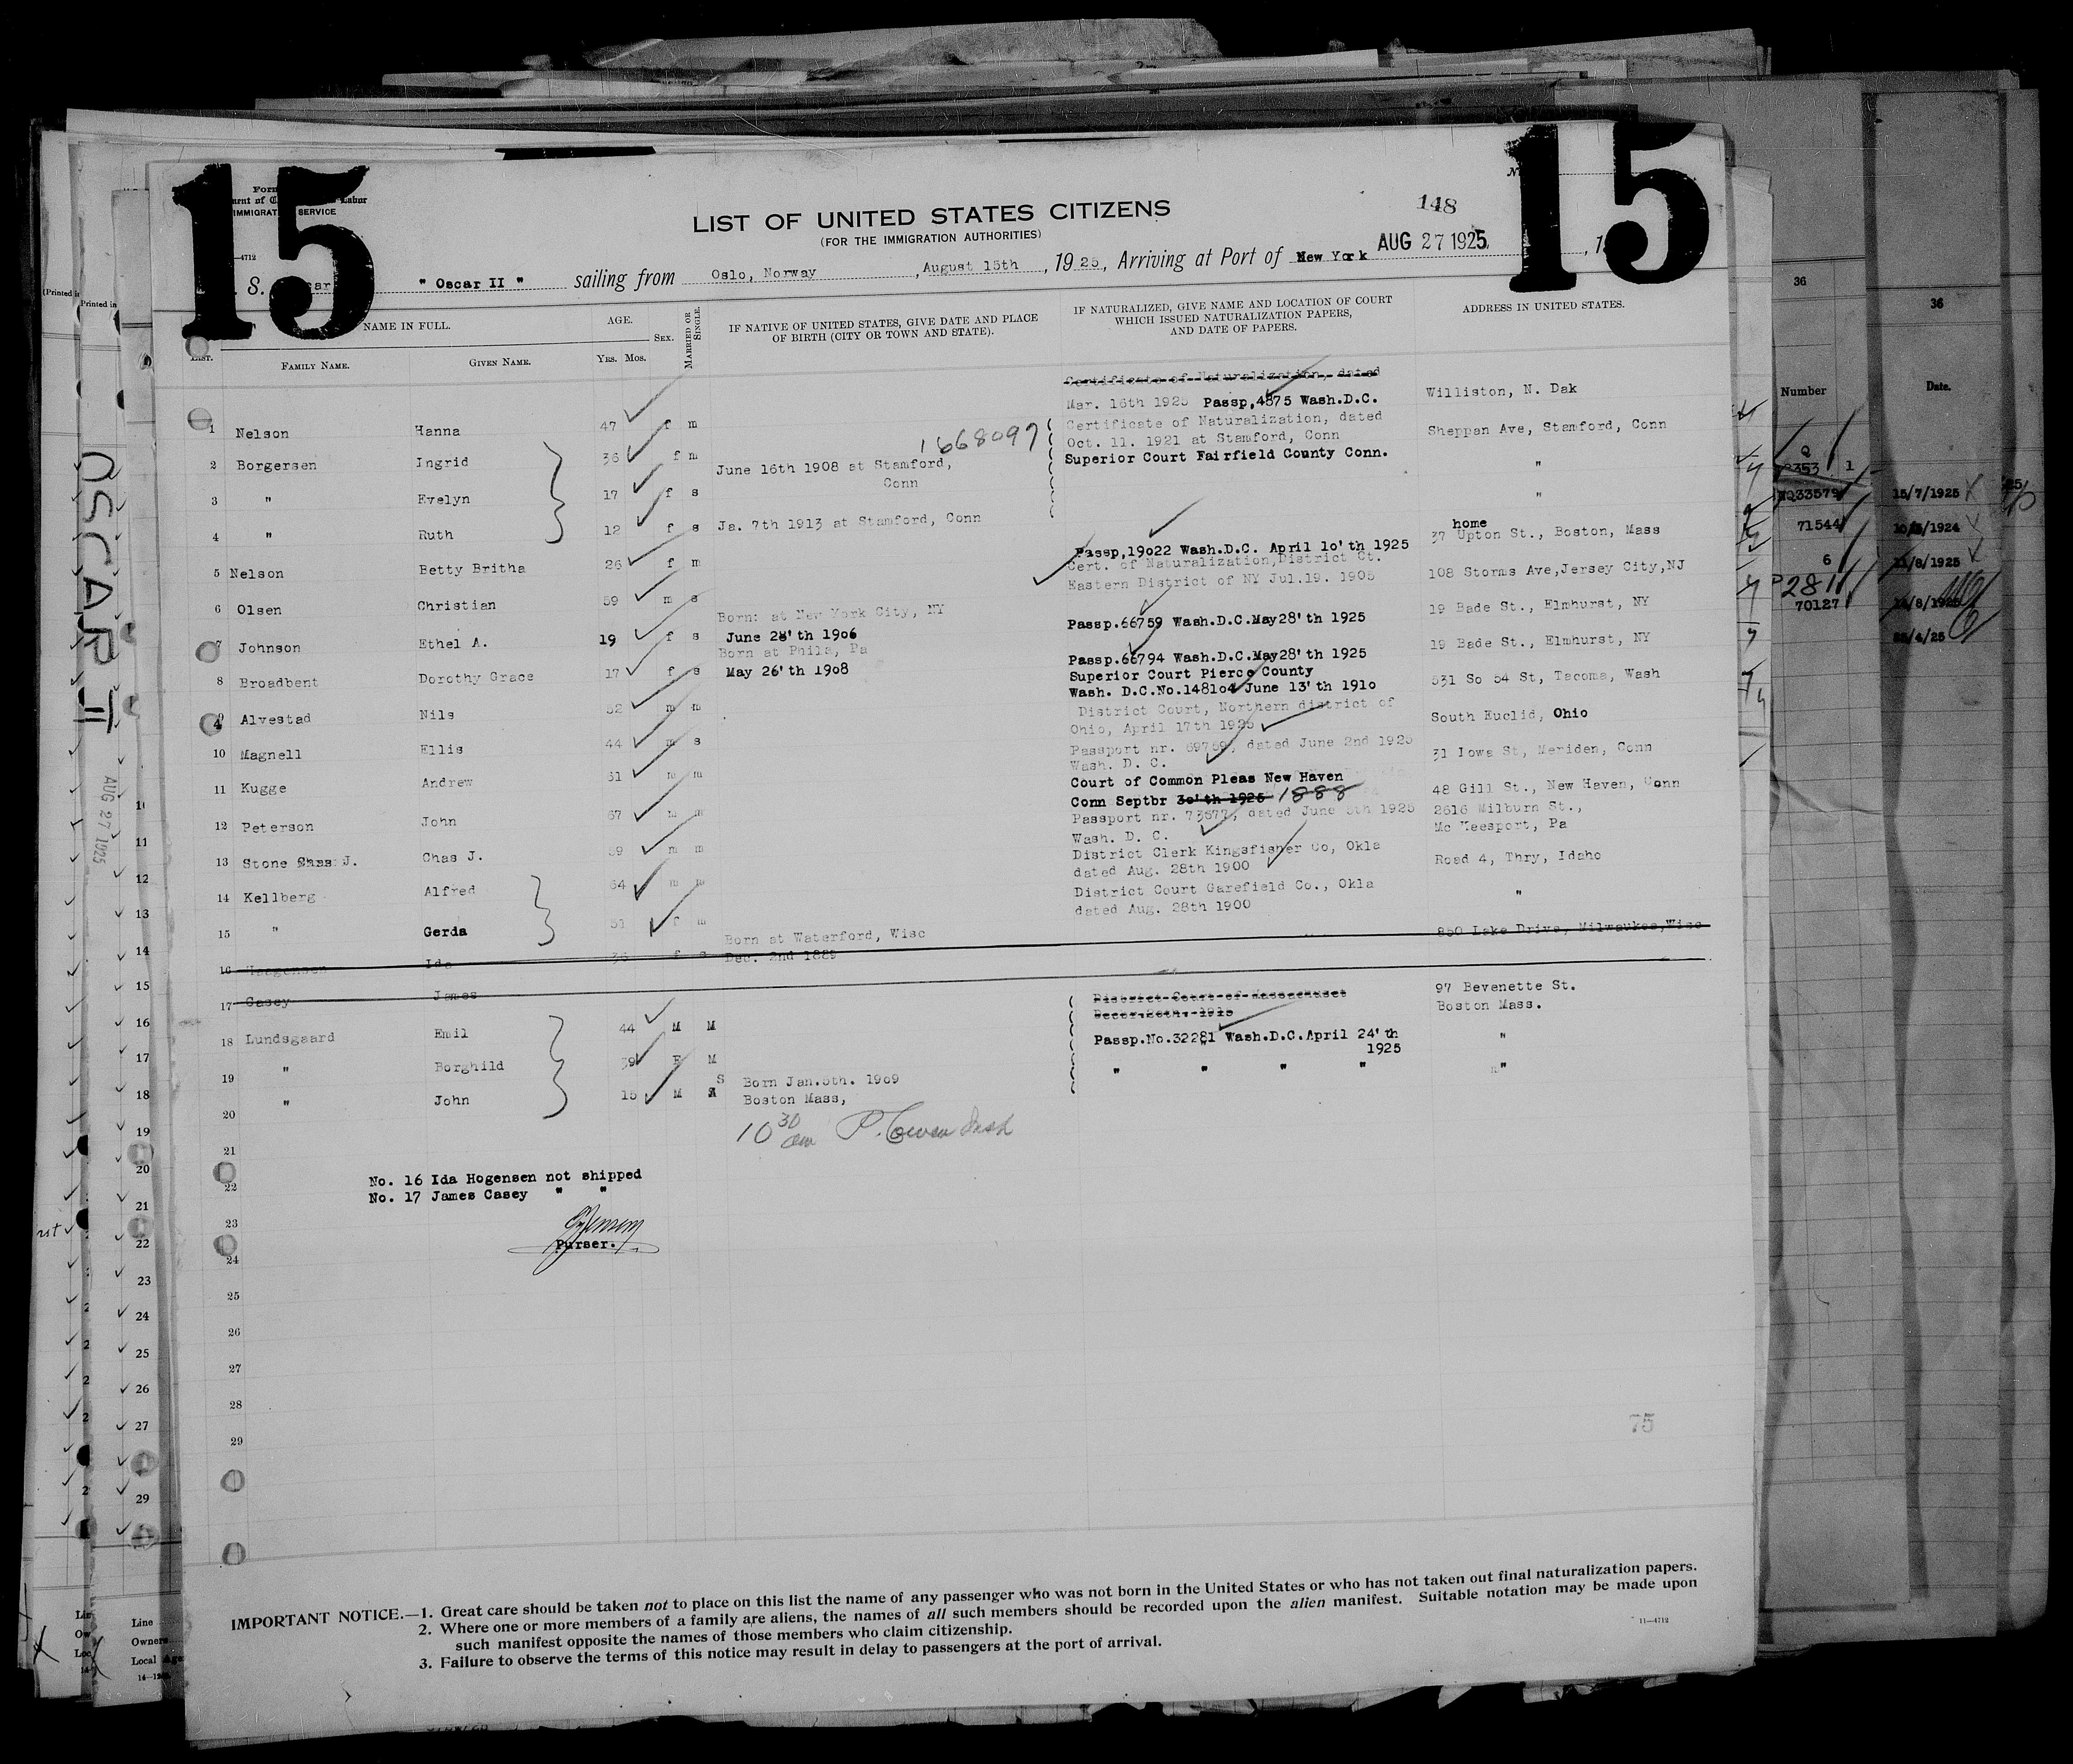 15
15
148
LIST OF UNITED STATES CITIZENS
(FOR THE IMMIGRATION AUTHORITIES)
IMMIGRAT SERVICE
S. " Oscar II " sailing from Oslo, Norway, August 15th, 1925, Arriving at Port of New York AUG 27 1925
NAME IN FULL.
FAMILY NAME.
GIVEN NAME.
AGE.
YRS. MOS.
SEX.
MARRIED OR SINGLE.
IF NATIVE OF UNITED STATES, GIVE DATE AND PLACE OF BIRTH (CITY OR TOWN AND STATE).
IF NATURALIZED, GIVE NAME AND LOCATION OF COURT WHICH ISSUED NATURALIZATION PAPERS, AND DATE OF PAPERS.
ADDRESS IN UNITED STATES.
Certificate of Naturalization, dated
1 Nelson Hanna 47 f m Mar. 16th 1925 Passp,4875 Wash.D.C. Williston, N. Dak
1668097
2 Borgersen Ingrid 36 f m Certificate of Naturalization, dated Oct. 11. 1921 at Stamford, Conn Superior Court Fairfield County Conn. Sheppan Ave, Stamford, Conn
3 " Evelyn 17 f s June 16th 1908 at Stamford, Conn "
4 " Ruth 12 f s Ja. 7th 1913 at Stamford, Conn "
5 Nelson Betty Britha 26 f m Passp,19022 Wash.D.C. April 10'th 1925 home 37 Upton St., Boston, Mass
6 Olsen Christian 59 m s Cert. of Naturalization,District Ct. Eastern District of NY Jul.19. 1905 108 Storms Ave,Jersey City,NJ
7 Johnson Ethel A. 19 f s Born: at New York City, NY June 28'th 1906 Passp.66759 Wash.D.C.May28'th 1925 19 Bade St., Elmhurst, NY
8 Broadbent Dorothy Grace 17 f s Born at Phila, Pa May 26'th 1908 Passp.66794 Wash.D.C.May28'th 1925 19 Bade St., Elmhurst, NY
9 Alvestad Nils 52 m m Superior Court Pierce County Wash. D.C.No.148104 June 13'th 1910 531 So 54 St, Tacoma, Wash
10 Magnell Ellis 44 m s District Court, Northern district of Ohio, April 17th 1925 South Euclid, Ohio
11 Kugge Andrew 61 m m Passport nr. 69759, dated June 2nd 1925 Wash. D. C. 31 Iowa St, Meriden, Conn
12 Peterson John 67 m m Court of Common Pleas New Haven Conn Septbr 30'th 1925 1888 48 Gill St., New Haven, Conn
13 Stone Chas J. Chas J. 59 m m Passport nr. 73577, dated June 5th 1925 Wash. D. C. 2616 Milburn St., Mc Keesport, Pa
14 Kellberg Alfred 54 m m District Clerk Kingsfisher Co, Okla dated Aug. 28th 1900 Road 4, Thry, Idaho
15 " Gerda 51 f m District Court Garefield Co., Okla dated Aug. 28th 1900 "
16 Haagensen Ida 36 f s Born at Waterford, Wisc Dec. 2nd 1889 850 Lake Drive, Milwaukee,Wisc
17 Casey James
18 Lundsgaard Emil 44 M M District Court of Massachuset Passp.No.32281 Wash.D.C.April 24'th 1925 97 Bevenette St. Boston Mass.
19 " Borghild 39 F M " " " " "
20 " John 15 M S Born Jan.5th. 1909 Boston Mass, "
21
10 30 am
22
No. 16 Ida Hogensen not shipped
No. 17 James Casey " "
23
Purser.
24
25
26
27
28
29
75
IMPORTANT NOTICE.—1. Great care should be taken not to place on this list the name of any passenger who was not born in the United States or who has not taken out final naturalization papers.
2. Where one or more members of a family are aliens, the names of all such members should be recorded upon the alien manifest. Suitable notation may be made upon
such manifest opposite the names of those members who claim citizenship.
3. Failure to observe the terms of this notice may result in delay to passengers at the port of arrival.
11—4712
OSCAR II
AUG 27 1925
36
36
Number
Date.
71544
70127
15/7/1925